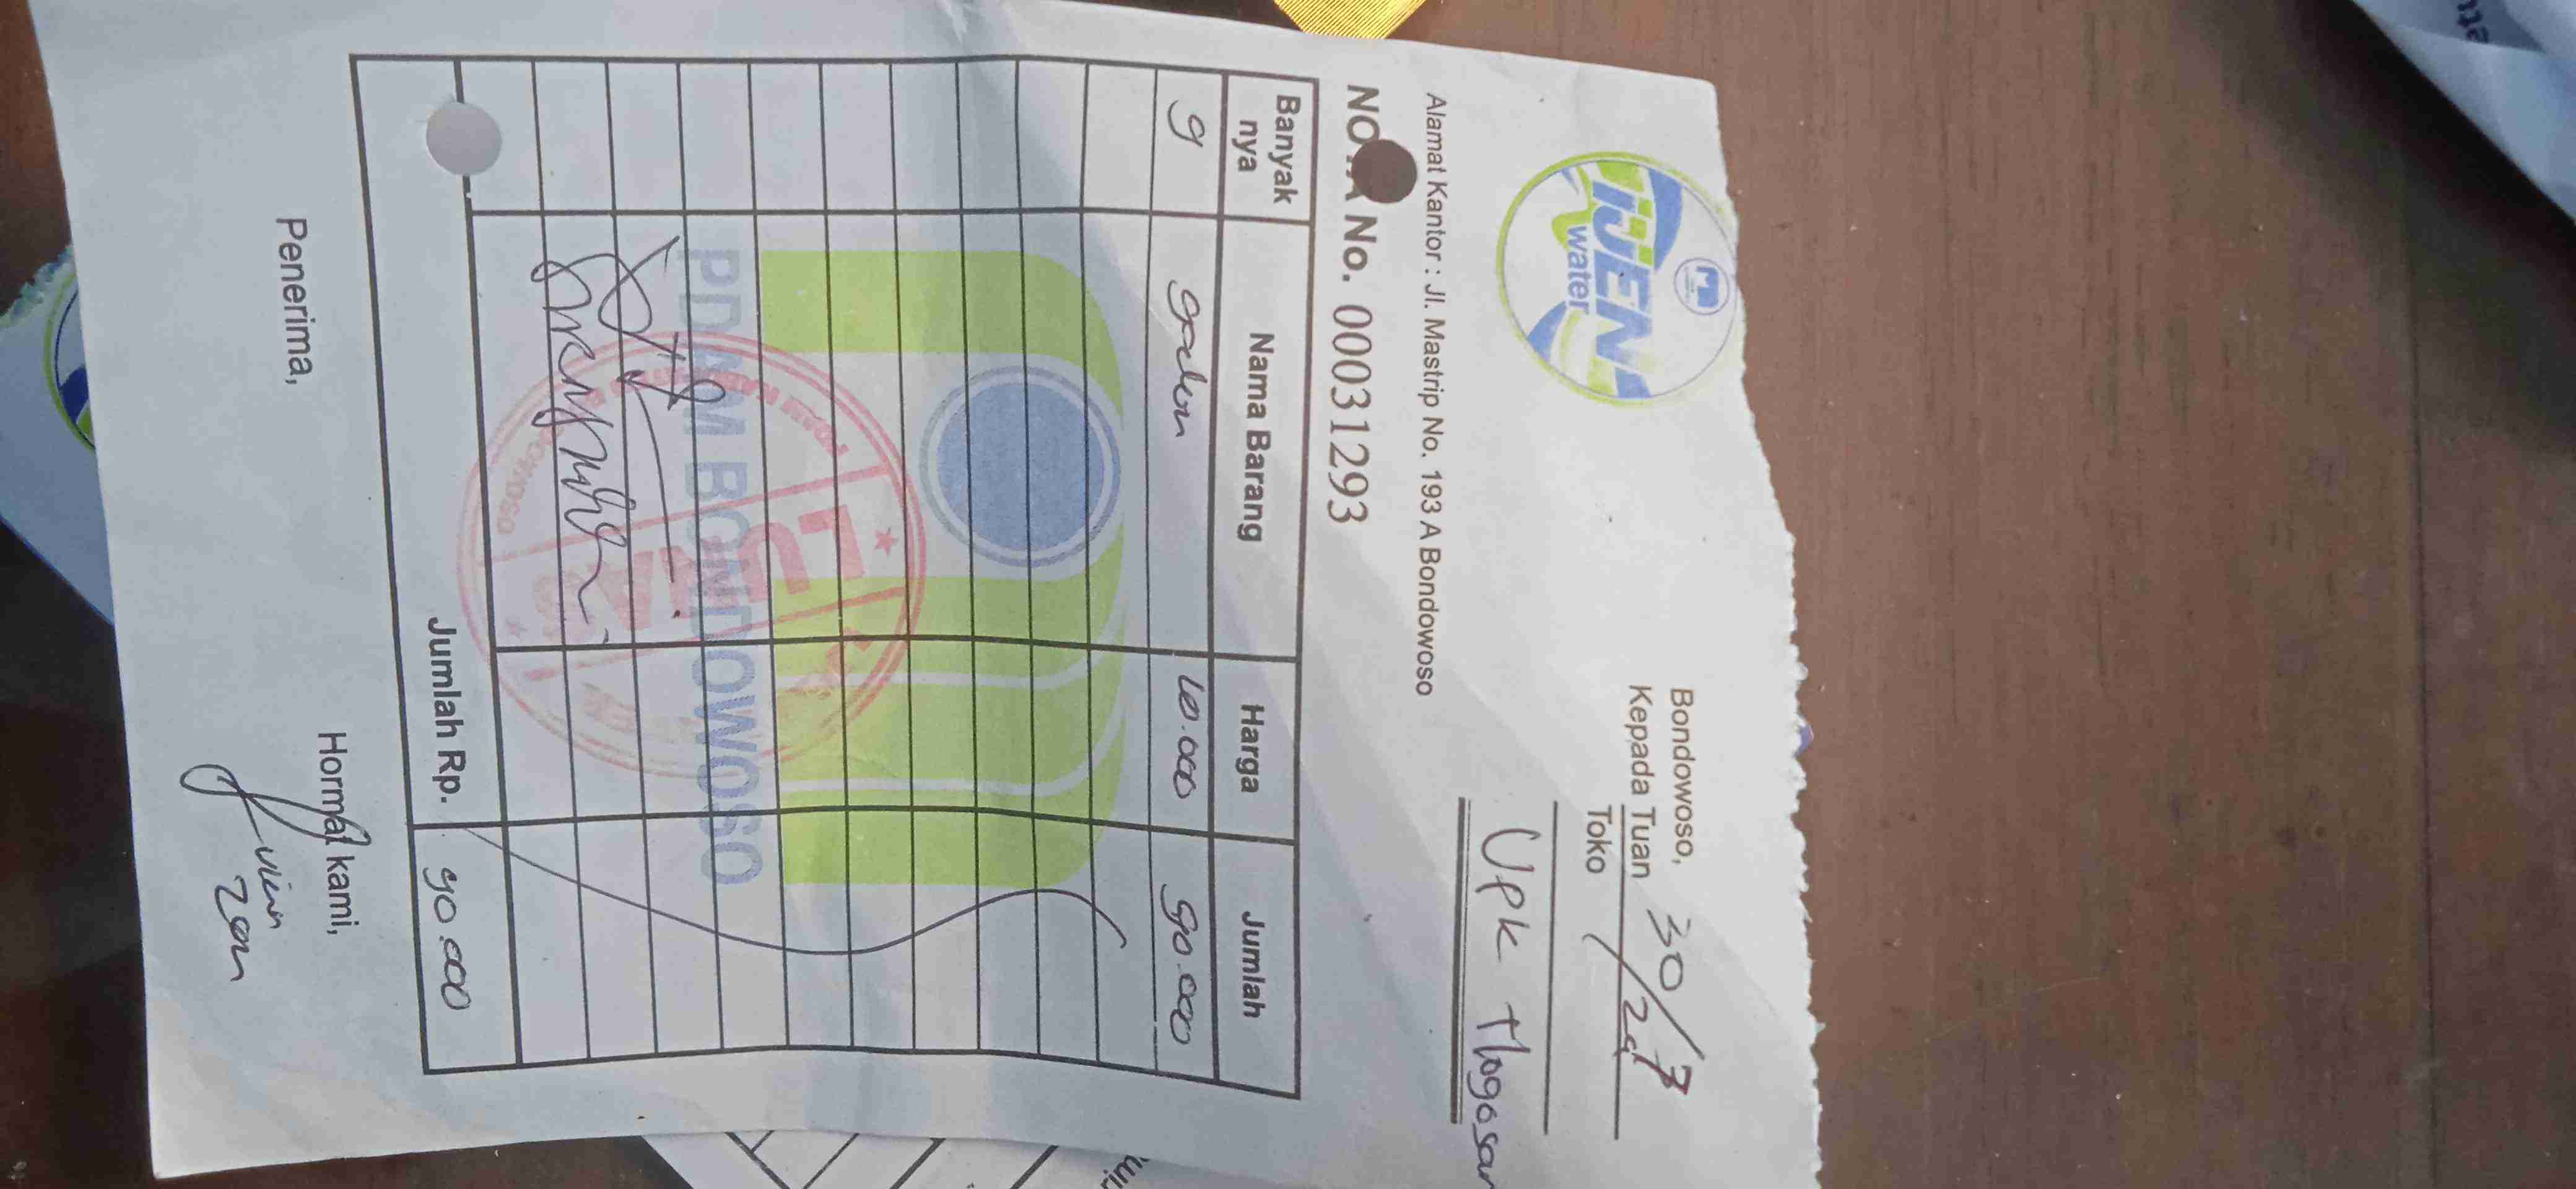 IJEN
water
Bondowoso, 30/7
Kepada Tuan /24
Toko
Upk Tlogosari
Alamat Kantor : Jl. Mastrip No. 193 A Bondowoso
NOTA No. 00031293
Banyak nya Nama Barang Harga Jumlah
9 galon 10.000 90.000
PDAM BONDOWOSO
LUNAS
BONDOWOSO
Jumlah Rp. 90.000
Penerima,
Hormat kami,